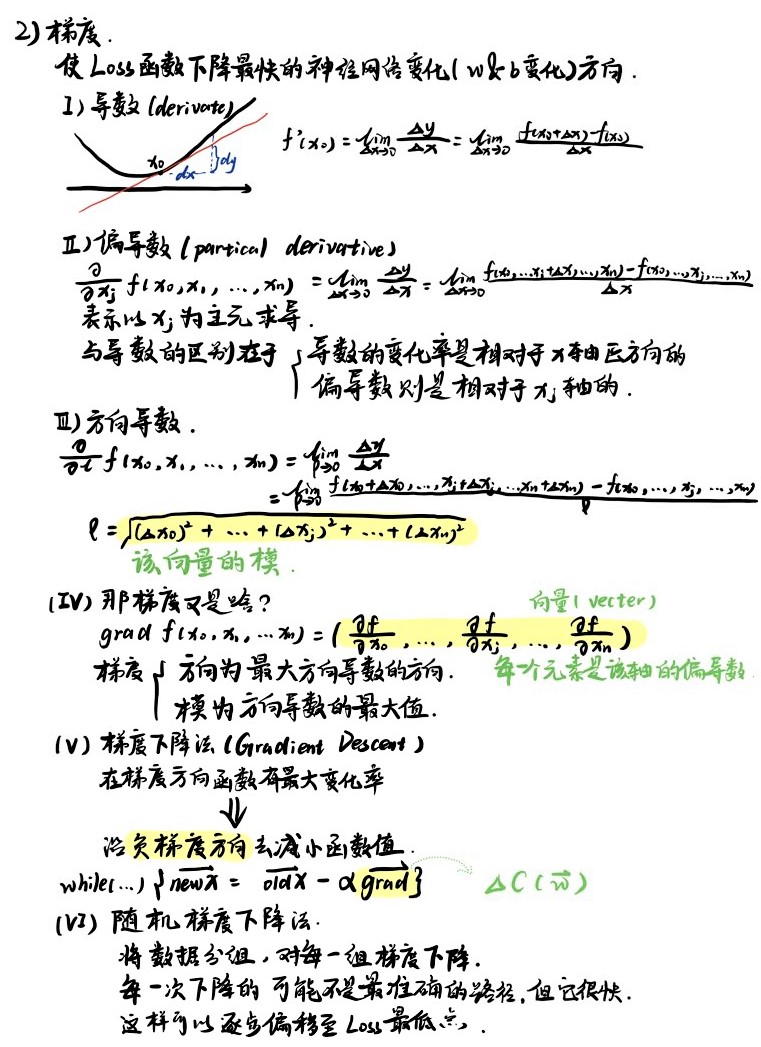 2) 梯度.
使 Loss 函数下降最快的神经网络变化( w & b 变化)方向.
I) 导数 (derivate)
f'(x₀) = lim Δx→0 Δy/Δx = lim Δx→0 f(x₀+Δx)-f(x₀)/Δx
x₀ dx dy
II) 偏导数 (partical derivative)
∂/∂xⱼ f(x₀,x₁,...,xₙ) = lim Δx→0 Δy/Δx = lim Δx→0 f(x₀,...xⱼ+Δx,...,xₙ)-f(x₀,...,xⱼ,...,xₙ)/Δx
表示以 xⱼ 为主元求导.
与导数的区别在于 { 导数的变化率是相对于 x 轴正方向的
偏导数则是相对于 xⱼ 轴的.
III) 方向导数.
∂/∂l f(x₀,x₁,...,xₙ) = lim ρ→0 Δy/Δx
= lim ρ→0 f(x₀+Δx₀,...,xⱼ+Δxⱼ,...xₙ+Δxₙ) - f(x₀,...,xⱼ,...,xₙ)/ρ
ρ = √(Δx₀)² + ... + (Δxⱼ)² + ... + (Δxₙ)²
该向量的模.
(IV) 那梯度又是啥?
向量( vecter )
grad f(x₀,x₁,...xₙ) = ( ∂f/∂x₀ , ..., ∂f/∂xⱼ , ..., ∂f/∂xₙ )
梯度 { 方向为最大方向导数的方向.
每一个元素是该轴的偏导数.
模为方向导数的最大值.
(V) 梯度下降法 (Gradient Descent )
在梯度方向函数有最大变化率
⇓
沿负梯度方向去减小函数值.
while(...) { new x = old x - α grad }
ΔC(w⃗)
(VI) 随机梯度下降法.
将数据分组, 对每一组梯度下降.
每一次下降的可能不是最准确的路径, 但它很快.
这样可以逐步偏移至 Loss 最低点.